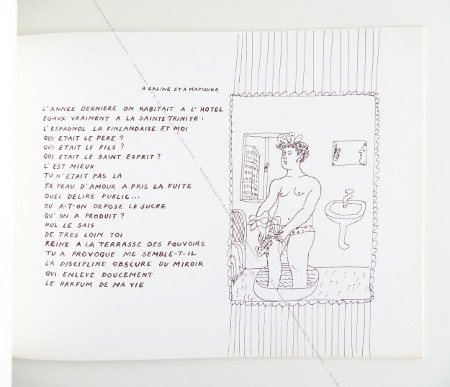 A GALINE ET A MAFIOURA
L'ANNEE DERNIERE ON HABITAIT A L'HOTEL
EGAUX VRAIMENT A LA SAINTE TRINITE :
L'ESPAGNOL LA FINLANDAISE ET MOI
QUI ETAIT LE PERE ?
QUI ETAIT LE FILS ?
QUI ETAIT LE SAINT ESPRIT ?
C'EST MIEUX
TU N'ETAIT PAS LA
TA PEAU D'AMOUR A PRIS LA FUITE
QUEL DELIRE PUBLIC...
OU A-T-ON DEPOSE LE SUCRE
QU'ON A PRODUIT ?
NUL LE SAIS
DE TRES LOIN TOI
REINE A LA TERRASSE DES POUVOIRS
TU A PROVOQUE ME SEMBLE-T-IL
LA DISCIPLINE OBSCURE DU MIROIR
QUI ENLEVE DOUCEMENT
LE PARFUM DE MA VIE